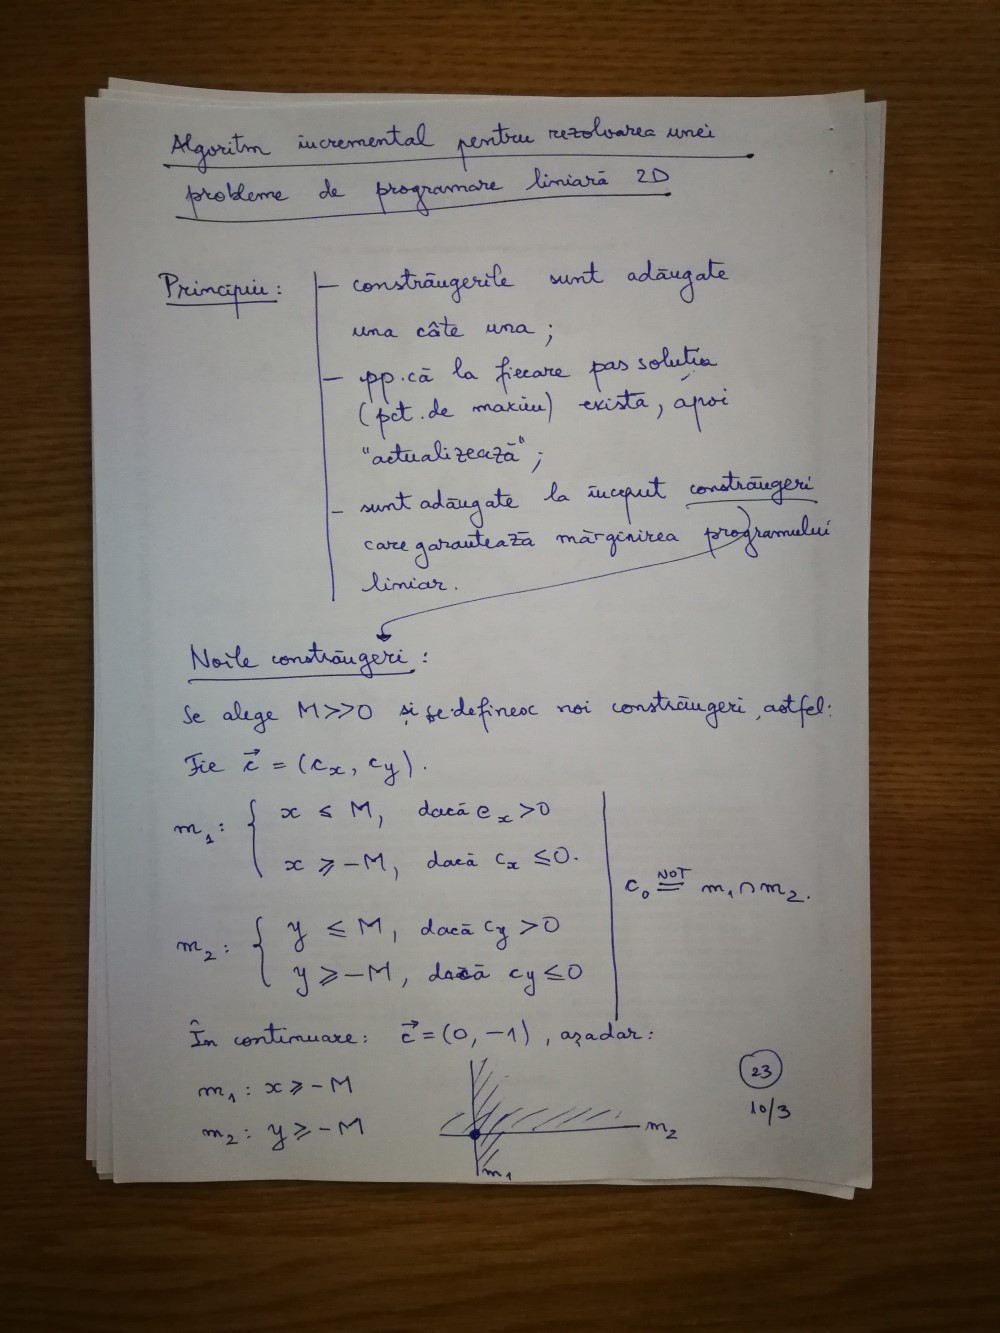 Algoritm incremental pentru rezolvarea unei
probleme de programare liniară 2D
Principiu:
– constrângerile sunt adăugate
una câte una;
– pp. că la fiecare pas soluția
(pct. de maxim) există, apoi
"actualizează";
– sunt adăugate la început constrângeri
care garantează mărginirea programului
liniar.
Noile constrângeri:
Se alege M>>0 și se definesc noi constrângeri, astfel:
Fie c⃗ = (cx, cy).
m₁: { x ≤ M, dacă cx > 0
x ≥ -M, dacă cx ≤ 0.
c₀ NOT= m₁ ∩ m₂.
m₂: { y ≤ M, dacă cy > 0
y ≥ -M, dacă cy ≤ 0
În continuare: c⃗ = (0, -1), așadar:
m₁: x ≥ -M
m₂: y ≥ -M
m₂
m₁
23
10/3